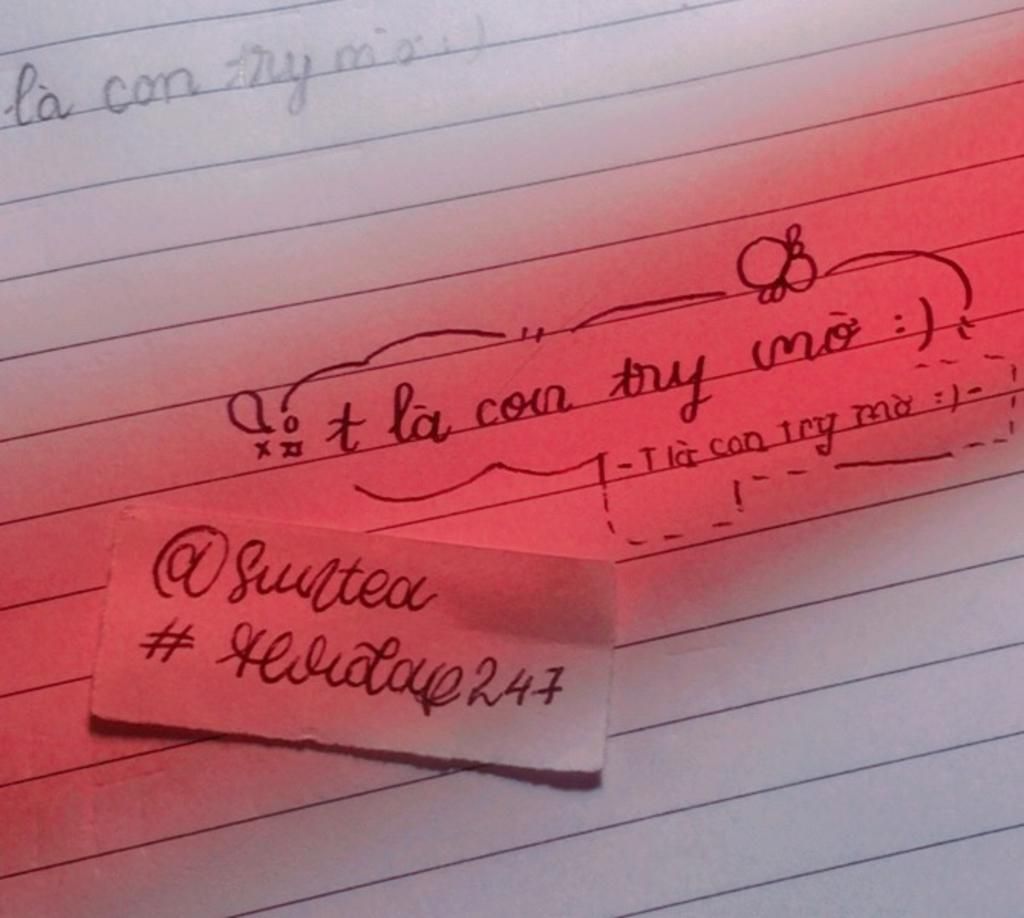 là con try mờ :)
t là con try mờ :)
- T là con try mờ :) -
@Suntea
#